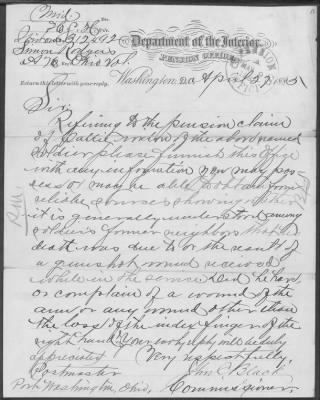 Mid Div.
Department of the Interior,
PENSION OFFICE
Simon Rodgers
Ohio Vol.
Washington, D.C. April 27, 1885
Return this letter with your reply.
Sir:
Referring to the pension claim
of widow of the above named
soldier please furnish this Office
with any information you may pos-
sess or may be able to obtain from
reliable sources showing whether
it is generally understood among
soldier's former neighbors that his
death was due to or the result of
a gunshot wound received
while in the service. Did he have
or complain of a wound of the
arm or any wound other than
the loss of the index finger of the
right hand? Your early reply will be duly
appreciated.
Very respectfully,
Postmaster
Jno C Black
Port Washington, Ohio.
Commissioner.